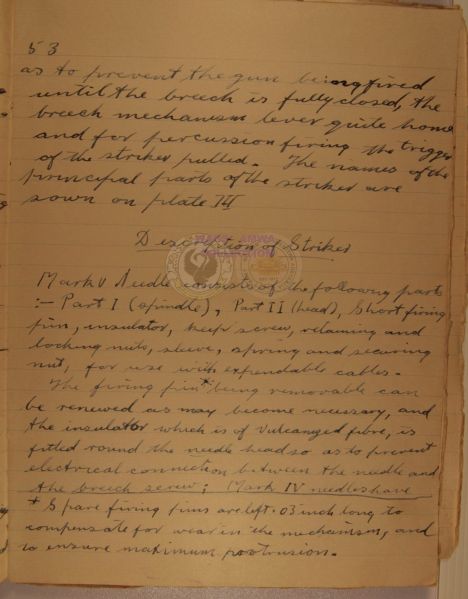 53
as to prevent the gun being fired
until the breech is fully closed, the
breech mechanism lever quite home
and for percussion firing the trigger
of the striker pulled. The names of the
principal parts of the striker are
sown on plate III
Description of Striker
Mark V Needle consists of the following parts
:- Part I (spindle), Part II (head), Short firing
pin, insulator, keep screw, retaining and
locking nuts, sleeve, spring and securing
nut, for use with expendable cables.
The firing pin* being removable can
be renewed as may become necessary, and
the insulator which is of Vulcanized fibre, is
fitted round the needle head so as to prevent
electrical connection between the needle and
the breech screw; Mark IV needles have
* Spare firing pins are left .03 inch long to
compensate for wear in the mechanism, and
to ensure maximum protrusion.